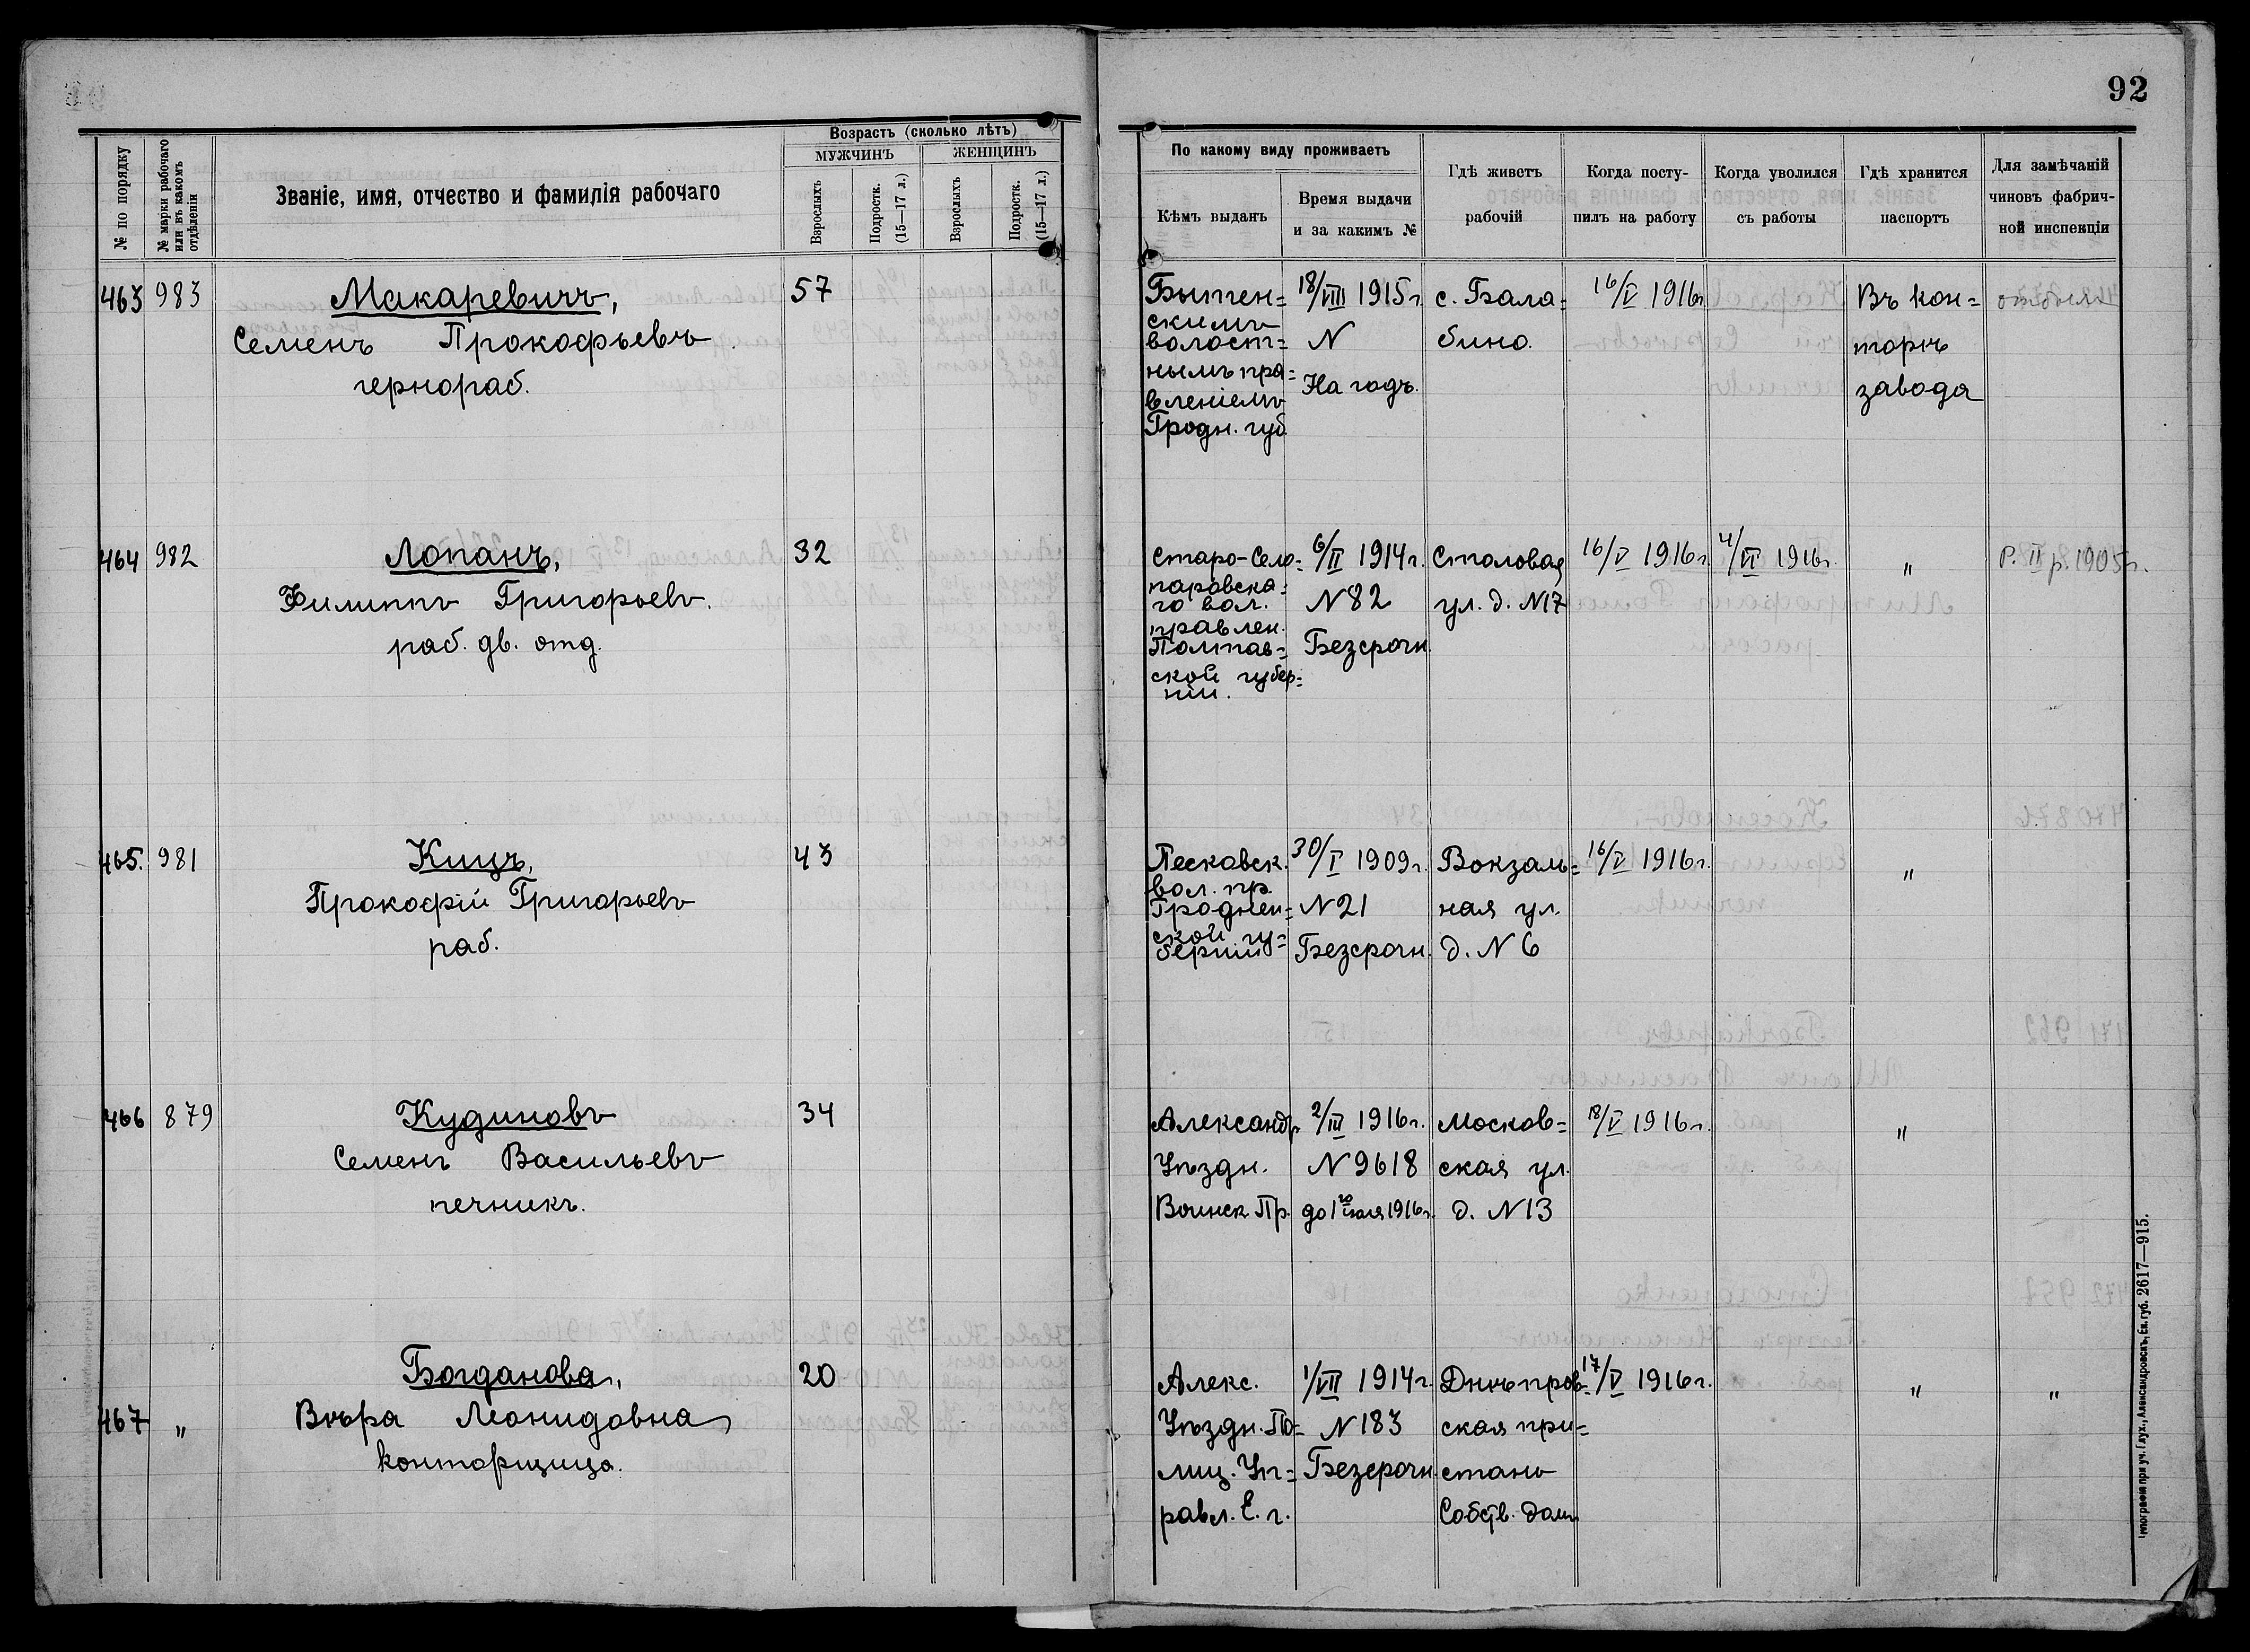 92
№ по порядку
№ марки рабочаго или въ какомъ отдѣленіи
Званіе, имя, отчество и фамилія рабочаго
Возрастъ (сколько лѣтъ)
МУЖЧИНЪ
ЖЕНЩИНЪ
Взрослыхъ
Подростк. (15—17 л.)
Взрослыхъ
Подростк. (15—17 л.)
По какому виду проживаетъ
Кѣмъ выданъ
Время выдачи
и за какимъ №
Гдѣ живетъ
рабочій
Когда посту-
пилъ на работу
Когда уволился
съ работы
Гдѣ хранится
паспортъ
Для замѣчаній
чиновъ фабрич-
ной инспекціи
463
983
Макаревичъ,
Семенъ Прокофьевъ
чернораб.
57
Бытен=
скимъ
волост=
нымъ пра=
вленіемъ
Гродн. губ.
18/VIII 1915г.
N
На годъ.
с. Бала=
бино.
16/V 1916г.
Въ кон=
торѣ
завода
464
982
Лопанъ,
Филиппъ Григорьевъ.
раб. дв. отд.
32
Старо-Село=
правлен.
Полтав=
ской губер=
ніи.
6/II 1914г.
N 82
Безсрочн.
Столовая
ул. д. N17
16/V 1916г.
4/VI 1916г.
"
Р. II р. 1905г.
465.
981
Кицъ,
Прокофій Григорьевъ
раб.
43
Песковск.
вол. пр.
Гроднен=
ской гу=
берніи
30/I 1909г.
N 21
Безсрочн.
Вокзаль=
ная ул.
д. N 6
16/V 1916г.
"
466
879
Кудиновъ
Семенъ Васильевъ
печникъ.
34
Александр.
Уѣздн.
Воинск. Пр.
2/III 1916г.
N 9618
до 1го іюля 1916г.
Москов=
ская ул.
д. N 13
18/V 1916г.
"
467
"
Богданова,
Вѣра Леонидовна,
конторщица.
20
Алекс.
Уѣздн. По=
лиц. Уп=
равл. Е. г.
1/VII 1914г.
N 183
Безсрочн.
Днѣпров=
ская при=
стань
Собств. домъ
17/V 1916г.
"
"
Типографія при уч. Глух., Александровскъ, Ек. губ. 2617—915.